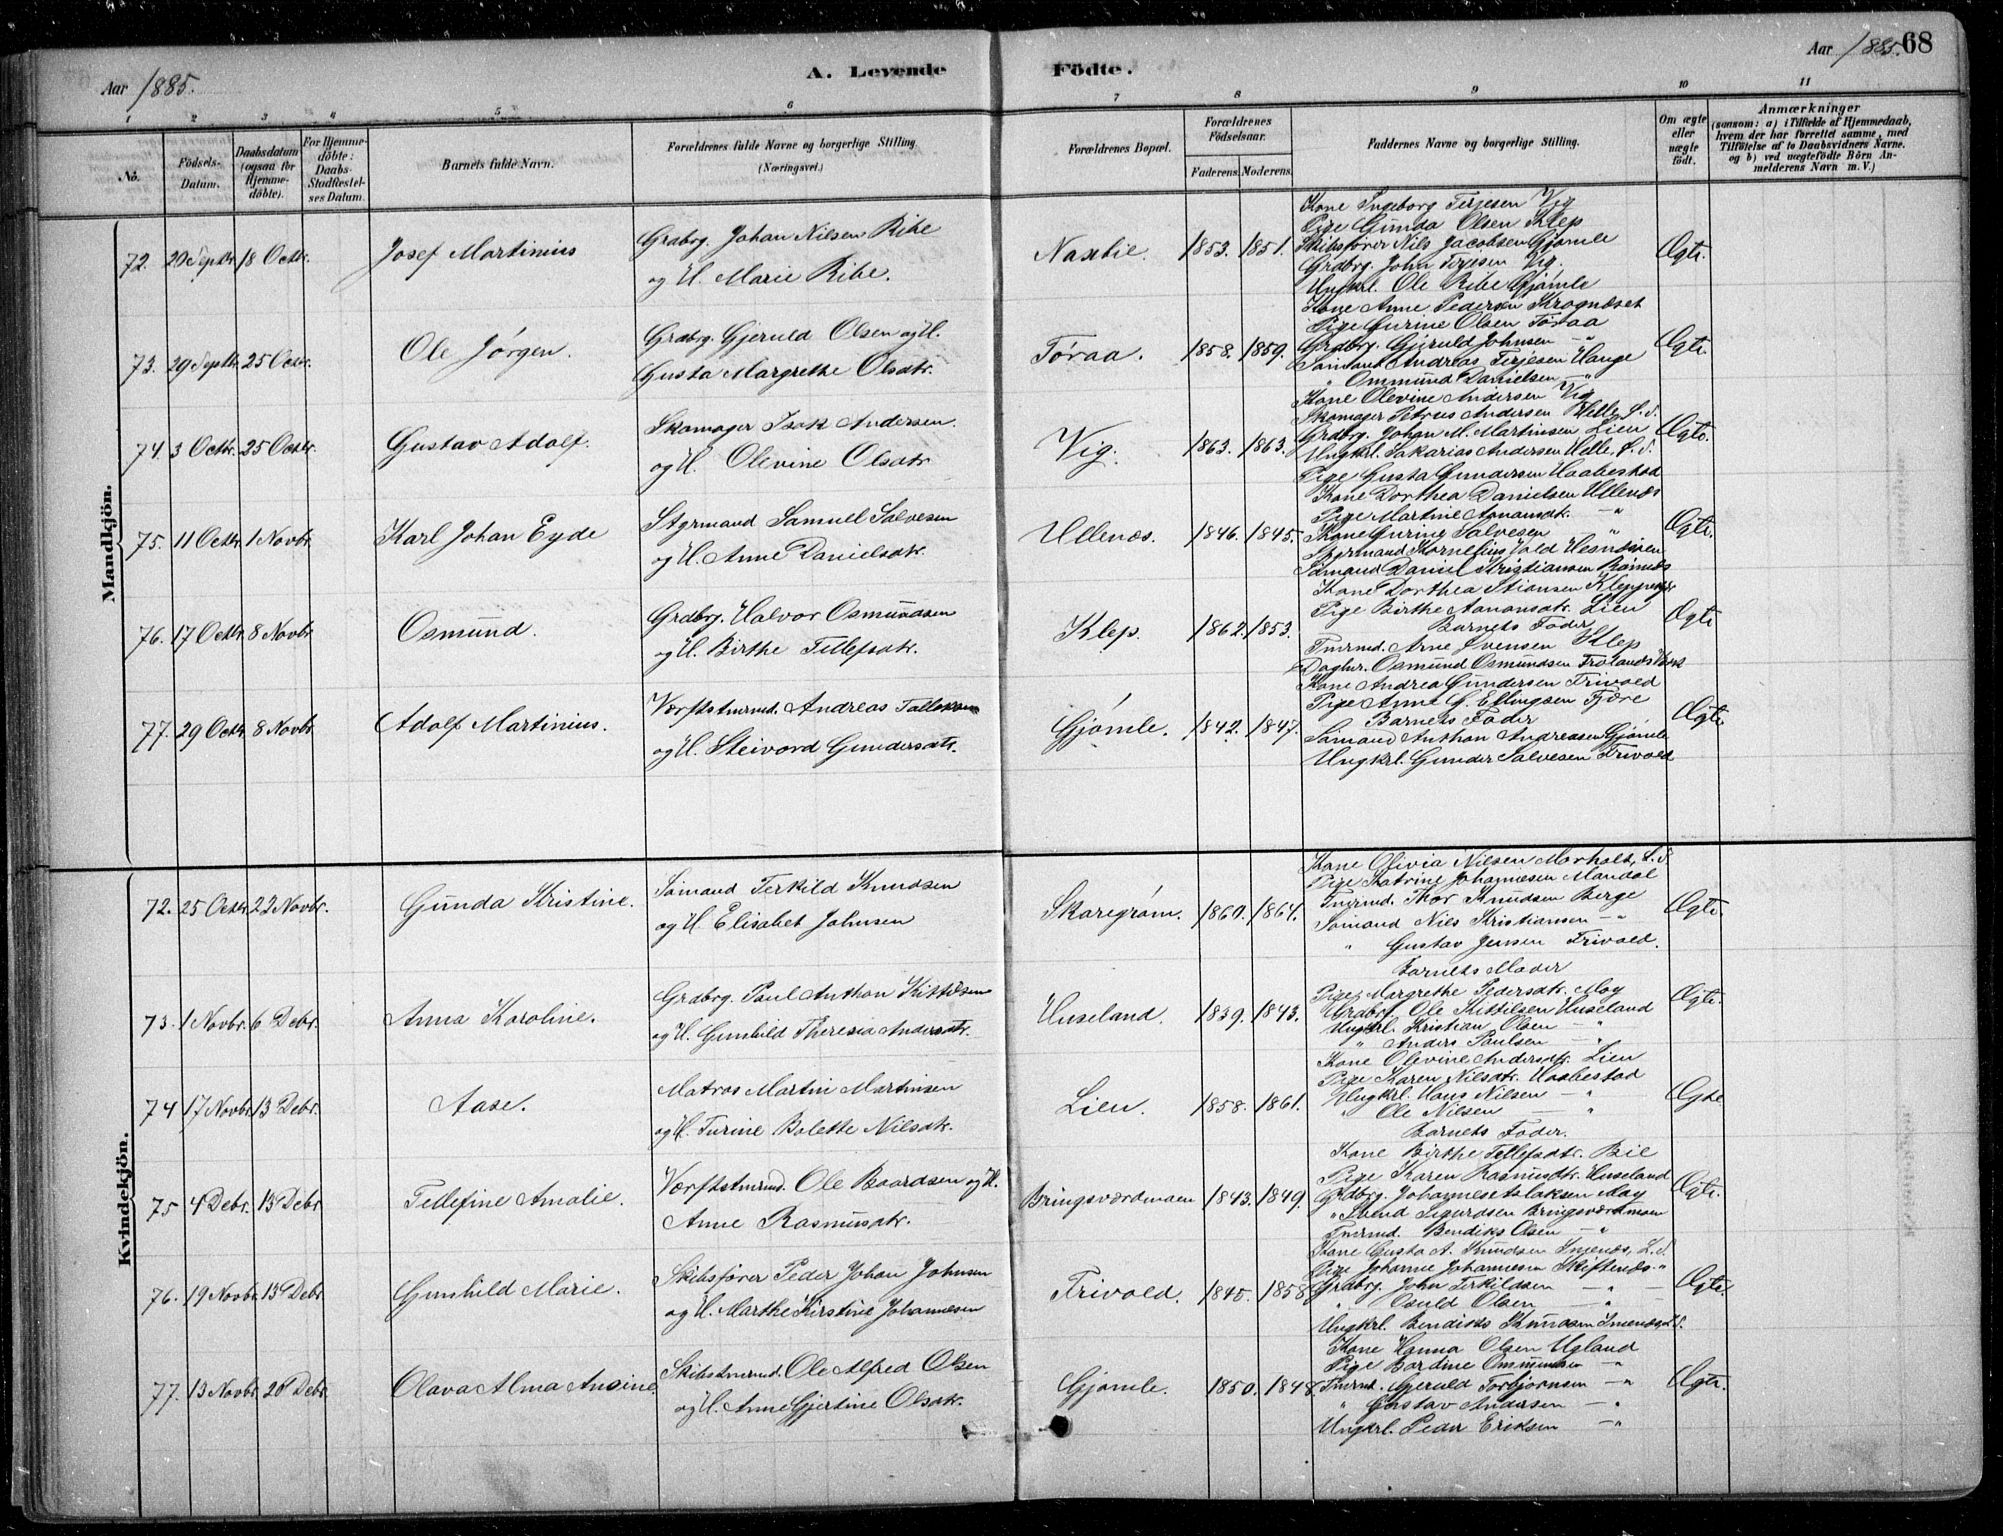 Aar 1885.
A. Levende Födte.
Aar 1885. 68
1 2 3 4 5 6 7 8 9 10 11
No.
Födsels-Datum.
Daabsdatum (ogsaa for Hjemme-döbte).
For Hjemme-döbte: Daabs-Stadfæstel-ses Datum.
Barnets fulde Navn.
Forældrenes fulde Navne og borgerlige Stilling (Næringsvei.)
Forældrenes Bopæl.
Forældrenes Födselsaar.
Faderens. Moderens.
Faddernes Navne og borgerlige Stilling.
Om ægte eller uægte födt.
Anmærkninger
(saasom: a) i Tilfælde af Hjemmedaab, hvem der har forrettet samme, med Tilföielse af to Daabsvidners Navne. og b) ved uægtefödte Börn An-melderens Navn m. V.)
Mandkjön.
72. 20 Septbr. 18 Octbr. Josef Martinius
Grdbrg. Johan Nilsen Ribe
og H. Marie Ribe.
Naxebie. 1853. 1851.
Kone Ingeborg Terjesen Vig
Pige Gunda Olsen Klep
Skibsfører Nils Jacobsen Gjømle
Grdbrg. John Terjesen Vig.
Ungkrl. Ole Ribe Gjømle
Ægte.
73. 29 Septbr. 25 Octbr. Ole Jørgen.
Grdbrg. Gjeruld Olsen og H.
Gusta Margrethe Olsdtr.
Tøraa. 1858. 1859.
Kone Anne Pedersen Krognæset
Pige Gurine Olsen Tøraa
Grdbrg. Gjeruld Johnsen — "
Sømand Andreas Terjesen Hauge
" Ommund Danielsen — "
Ægte.
74. 3 Octbr. 25 Octbr. Gustav Adolf.
Skomager Isak Andersen.
og H. Olevine Olsdtr.
Vig. 1863. 1863.
Kone Olevine Andersen Vig
Skomager Petrus Andersen Helle, L. S.
Grdbrg. Johan M. Martinsen Lien
Ungkrl. Sakarias Andersen Helle, L. S.
Pige Gusta Gundersen Haabestad
Ægte.
75. 11 Octbr. 1 Novbr. Karl Johan Eyde
Styrmand Samuel Salvesen
og H. Anne Danielsdtr.
Ullenæs. 1846. 1845.
Kone Dorthea Danielsen Ullenæs
Pige Martine Aanonsdtr. — "
Kone Guring Salvesen "
Styrmand Kornelius Vold Hesnesøen
Sømand Daniel Kristiansen Rønnes
Ægte.
76. 17 Octbr. 8 Novbr. Osmund.
Grdbrg. Halvor Osmundsen
og H. Birthe Tellefsdtr.
Klep. 1862. 1853.
Kone Dorthea Stiansen Kleppekjær
Pige Birthe Aanonsdtr. Lien
Barnets Fader
Tmrmd. Arne Ivensen Klep
Dagbr. Osmund Osmundsen Frolands Værk
Ægte
77. 29 Octbr. 8 Novbr. Adolf Martinius.
Værftstmrmd. Andreas Tallaksen
og H. Steivord Gundersdtr.
Gjømle. 1842. 1847.
Kone Andrea Gundersen Trivold
Pige Anne G. Ellingsen Fjære
Barnets Fader
Sømand Anthon Andreasen Gjømle
Ungkrl. Gunder Salvesen Trivold
Ægte
Kvindekjön.
72. 25 Octbr. 22 Novbr. Gunda Kristine.
Sømand Terkild Knudsen
og H. Elisabet Johnsen
Skaregrøm. 1860. 1864.
Kone Olivia Nilsen Morholt, L. S.
Pige Katrine Johannesen Mandal
Tmrmd. Thor Knudsen Berge
Sømand Nils Kristiansen — "
" Gustav Jensen Trivold.
Ægte.
73. 1 Novbr. 6 Debr. Anna Karoline.
Grdbrg. Paul Anthon Kittilsen
og H. Gunhild Theresia Andersdtr.
Huseland. 1839. 1843.
Barnets Moder
Pige Margrethe Pedersdtr. Moy
Grdbrg. Ole Kittilsen Huseland
Ungkrl. Kristian Olsen — "
" Anders Paulsen — "
Ægte.
74 17 Novbr. 13 Debr. Aase.
Matros Martin Martinsen
og H. Turine Bolette Nilsdtr.
Lien. 1858. 1861.
Kone Olevine Andersdtr. Lien
Pige Karen Nilsdtr. Haabestad
Ungkrl. Hans Nilsen — "
" Ole Nilsen — "
Barnets Fader.
Ægte
75 4 Debr. 13 Debr. Tellefine Amalie.
Værftstmrmd. Ole Baardsen og H.
Anne Rasmusdtr.
Bringsværdmoen 1843. 1849.
Kone Birthe Tellefsdtr. Bie
Pige Karen Rasmusdtr. Huseland
Grdbrg. Johannes Isaksen Moy
" Svend Sigurdsen Bringsværdmoen
Tmrmd. Bendiks Olsen — "
Ægte.
76. 19 Novbr. 13 Debr. Gunhild Marie.
Skibsfører Peder Johan Johnsen
og H. Marthe Kirstine Johannesen
Trivold. 1845. 1858
Kone Gusta A. Knudsen Injenæs, L. S.
Pige Johanne Johannesen Skiftenæs "
Grdbrg. John Terkildsen — " —
" Osuld Olsen — "
Ungkrl. Bendiks Knudsen Injenæs, L. S.
Ægte.
77. 13 Novbr. 26 Debr. Olava Alma Ansine
Skibstmrmd. Ole Alfred Olsen
og H. Anne Gjertine Olsdtr.
Gjømle. 1850. 1848.
Kone Hanna Olsen Ugland
Pige Bardine Ommundsen — "
Tmrmd. Gjeruld Torbjørnsen — "
" Gustav Andersen — "
Ungkrl. Peder Eriksen — "
Ægte.